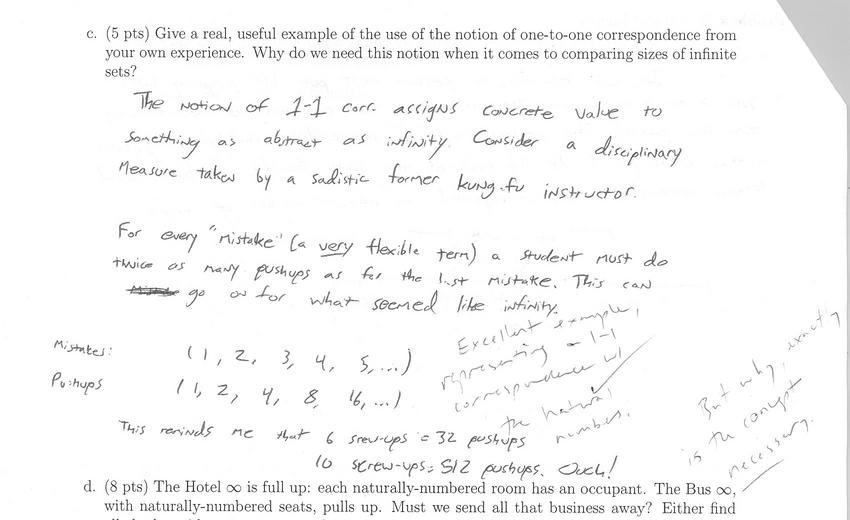 c. (5 pts) Give a real, useful example of the use of the notion of one-to-one correspondence from
your own experience. Why do we need this notion when it comes to comparing sizes of infinite
sets?
The notion of 1-1 corr. assigns concrete value to
something as abstract as infinity. Consider a disciplinary
measure taken by a sadistic former kung-fu instructor.
For every "mistake" (a very flexible term) a student must do
twice as many pushups as for the last mistake. This can
go on for what seemed like infinity.
Excellent example,
representing a 1-1
correspondence w/
the natural
numbers.
But why, exactly,
is the concept
necessary.
Mistakes: (1, 2, 3, 4, 5, ...)
Pushups (1, 2, 4, 8, 16, ...)
This reminds me that 6 screw-ups = 32 pushups
10 screw-ups = 512 pushups. Ouch!
d. (8 pts) The Hotel ∞ is full up: each naturally-numbered room has an occupant. The Bus ∞,
with naturally-numbered seats, pulls up. Must we send all that business away? Either find